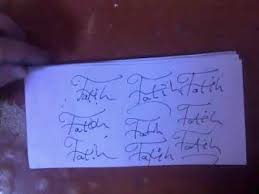 Fatih Fatih Fatih
Fatih Fatih Fatih
Fatih Fatih Fatih